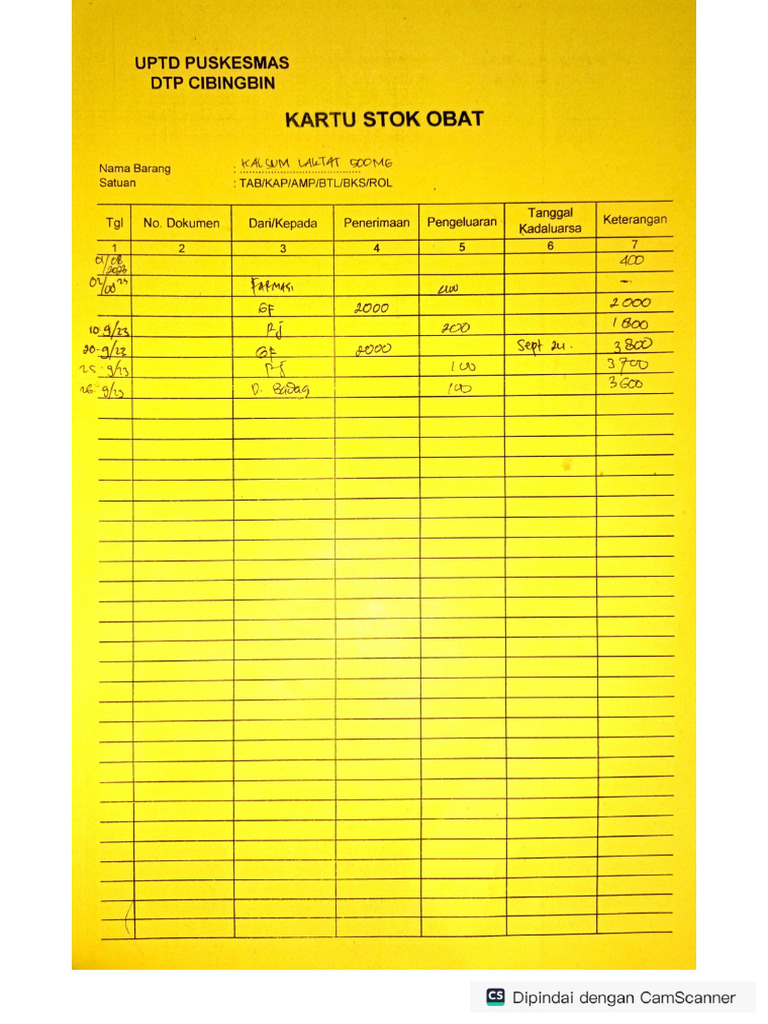 UPTD PUSKESMAS
DTP CIBINGBIN
KARTU STOK OBAT
Nama Barang : KALSIUM LAKTAT 500MG
Satuan : TAB/KAP/AMP/BTL/BKS/ROL
Tgl No. Dokumen Dari/Kepada Penerimaan Pengeluaran Tanggal Kadaluarsa Keterangan
1 2 3 4 5 6 7
01/08/2023 400
FARMASI 400 -
GF 2000 2000
10-9/23 Rj 200 1800
20-9/23 GF 2000 Sept 24. 3800
25-9/23 Rj 100 3700
26-9/23 D. 100 3600
CS Dipindai dengan CamScanner